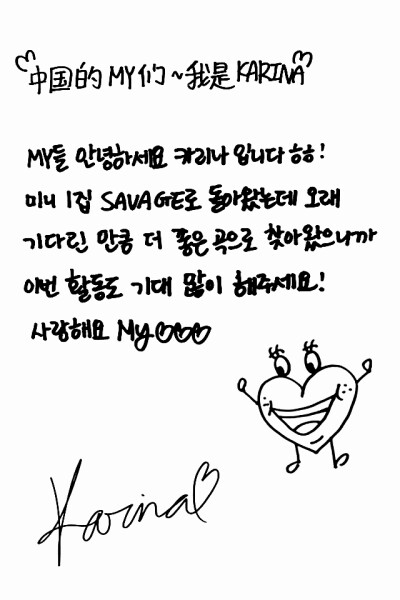 中国的 MY们 ~ 我是 KARINA
MY들 안녕하세요 카리나 입니다 ㅎㅎ!
미니 1집 SAVAGE로 돌아왔는데 오래
기다린 만큼 더 좋은 곡으로 찾아왔으니까
이번 활동도 기대 많이 해주세요!
사랑해요 My♡♡♡
Karina♡